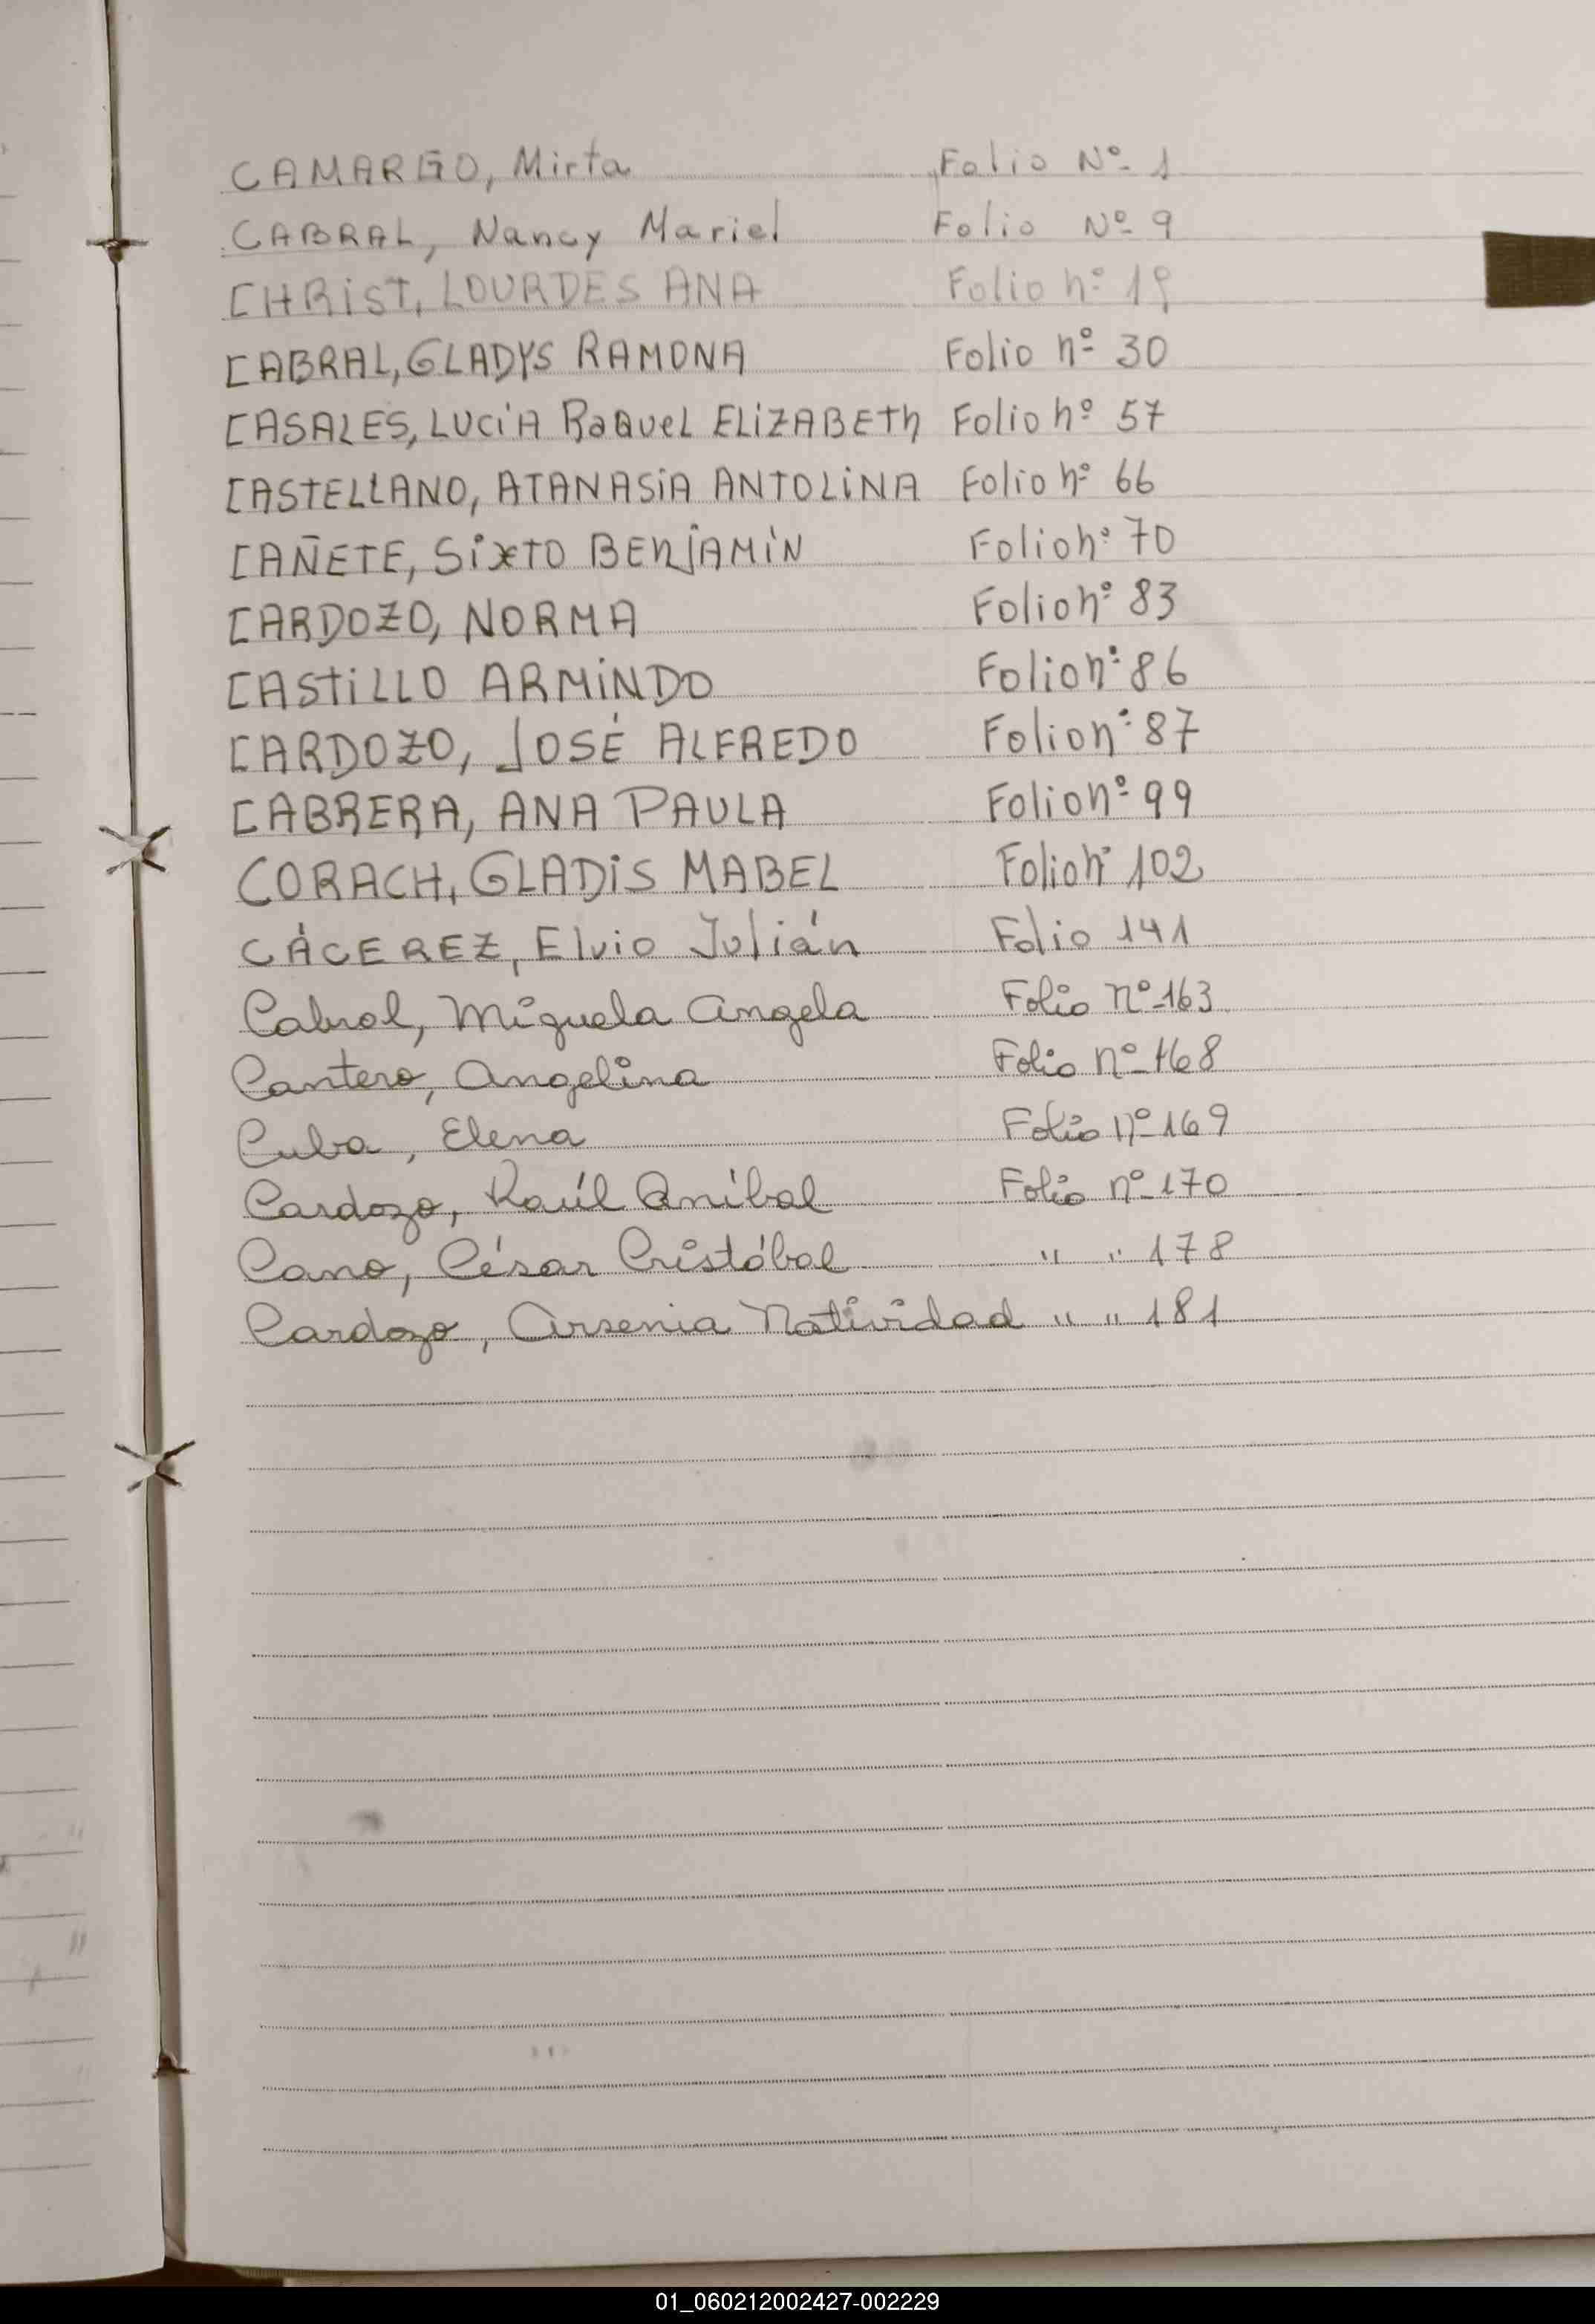 CAMARGO, Mirta Folio Nº 1
CABRAL, Nancy Mariel Folio Nº 9
CHRiST, LOURDES ANA Folio nº 19
CABRAL, GLADYS RAMONA Folio nº 30
CASALES, LUCiA RaQueL ELiZABETh Folio nº 57
CASTELLANO, ATANASiA ANTOLiNA Folio nº 66
CAÑETE, SixTO BENJAMíN Folio nº 70
CARDOZO, NORMA Folio nº 83
CASTiLLO ARMiNDO Folio nº 86
CARDOZO, JOSÉ ALFREDO Folio nº 87
CABRERA, ANA PAULA Folio nº 99
CORACH, GLADiS MABEL Folio nº 102
CÁCEREZ, Elvio Julián Folio 141
Cabrol, Miguela Angela Folio nº 163
Cantero, Angelina Folio nº 168
Cuba, Elena Folio nº 169
Cardozo, Raúl Aníbal Folio nº 170
Cano, César Cristóbal " " 178
Cardozo, Arsenia Natividad " " 181
01_060212002427-002229